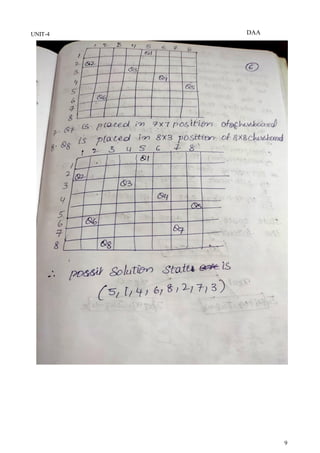 UNIT-4 DAA
1 2 3 4 5 6 7 8
1 Q1
2 Q2
3 Q3
4 Q4
5 Q5
6 Q6
7
8
6
7. Q7 is placed in 7x7 position of chessboard
8. Q8 is placed in 8x3 position of 8x8 chessboard
1 2 3 4 5 6 7 8
1 Q1
2 Q2
3 Q3
4 Q4
5 Q5
6 Q6
7 Q7
8 Q8
∴ possit Solution State is
(5, 1, 4, 6, 8, 2, 7, 3)
9